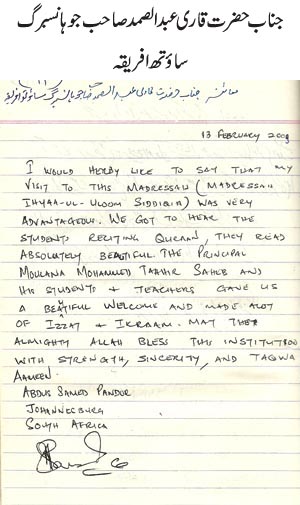 جناب حضرت قاری عبدالصمد صاحب جوہانسبرگ
ساؤتھ افریقہ
جناب حضرت قاری عبدالصمد صاحب جوہانسبرگ ساؤتھ افریقہ
13 FEBRUARY 2009
I WOULD HERBY LIKE TO SAY THAT MY
VISIT TO THIS MADRESSAH (MADRESSAH
IHYAA-UL-ULOOM SIDDIQIA) WAS VERY
ADVANTAGEOUS. WE GOT TO HEAR THE
STUDENTS RECITING QURAAN, THEY READ
ABSOLUTELY BEATIFUL. THE PRINCIPAL
MOULANA MOHAMMED TAAHIR SAHEB AND
HIS STUDENTS & TEACHERS GAVE US
A BEATIFUL WELCOME AND MADE ALOT
OF IZZAT & IKRAAM. MAY THE
ALMIGHTY ALLAH BLESS THIS INSTITUTION
WITH STRENGTH, SINCERITY, AND TAQWA
AAMEEN.
ABDUS SAMED PANDOR
JOHANNESBURG
SOUTH AFRICA